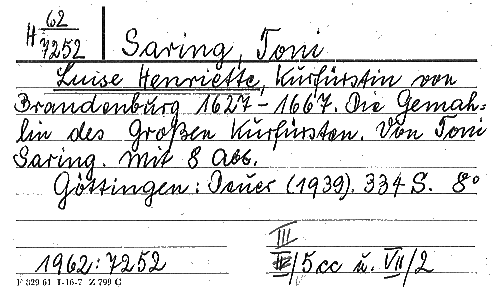 H 62
7252
Saring, Toni
Luise Henriette, Kurfürstin von
Brandenburg 1627-1667. Die Gemah-
lin des Großen Kurfürsten. Von Toni
Saring. Mit 8 Abb.
Göttingen: Deuer (1939). 334 S. 8°
III
1962:7252
/5cc u. VII/2
F 829 61 I-16-7 Z 799 G